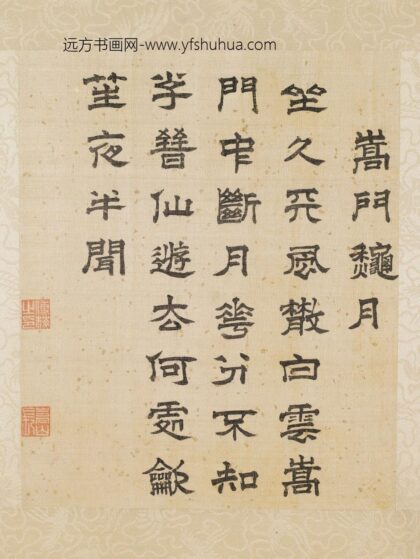 远方书画网-www.yfshuhua.com
嵩門龝月
坐久天風散白雲嵩
門中斷月華分不知
子晉仙遊去何處龡
笙夜半聞